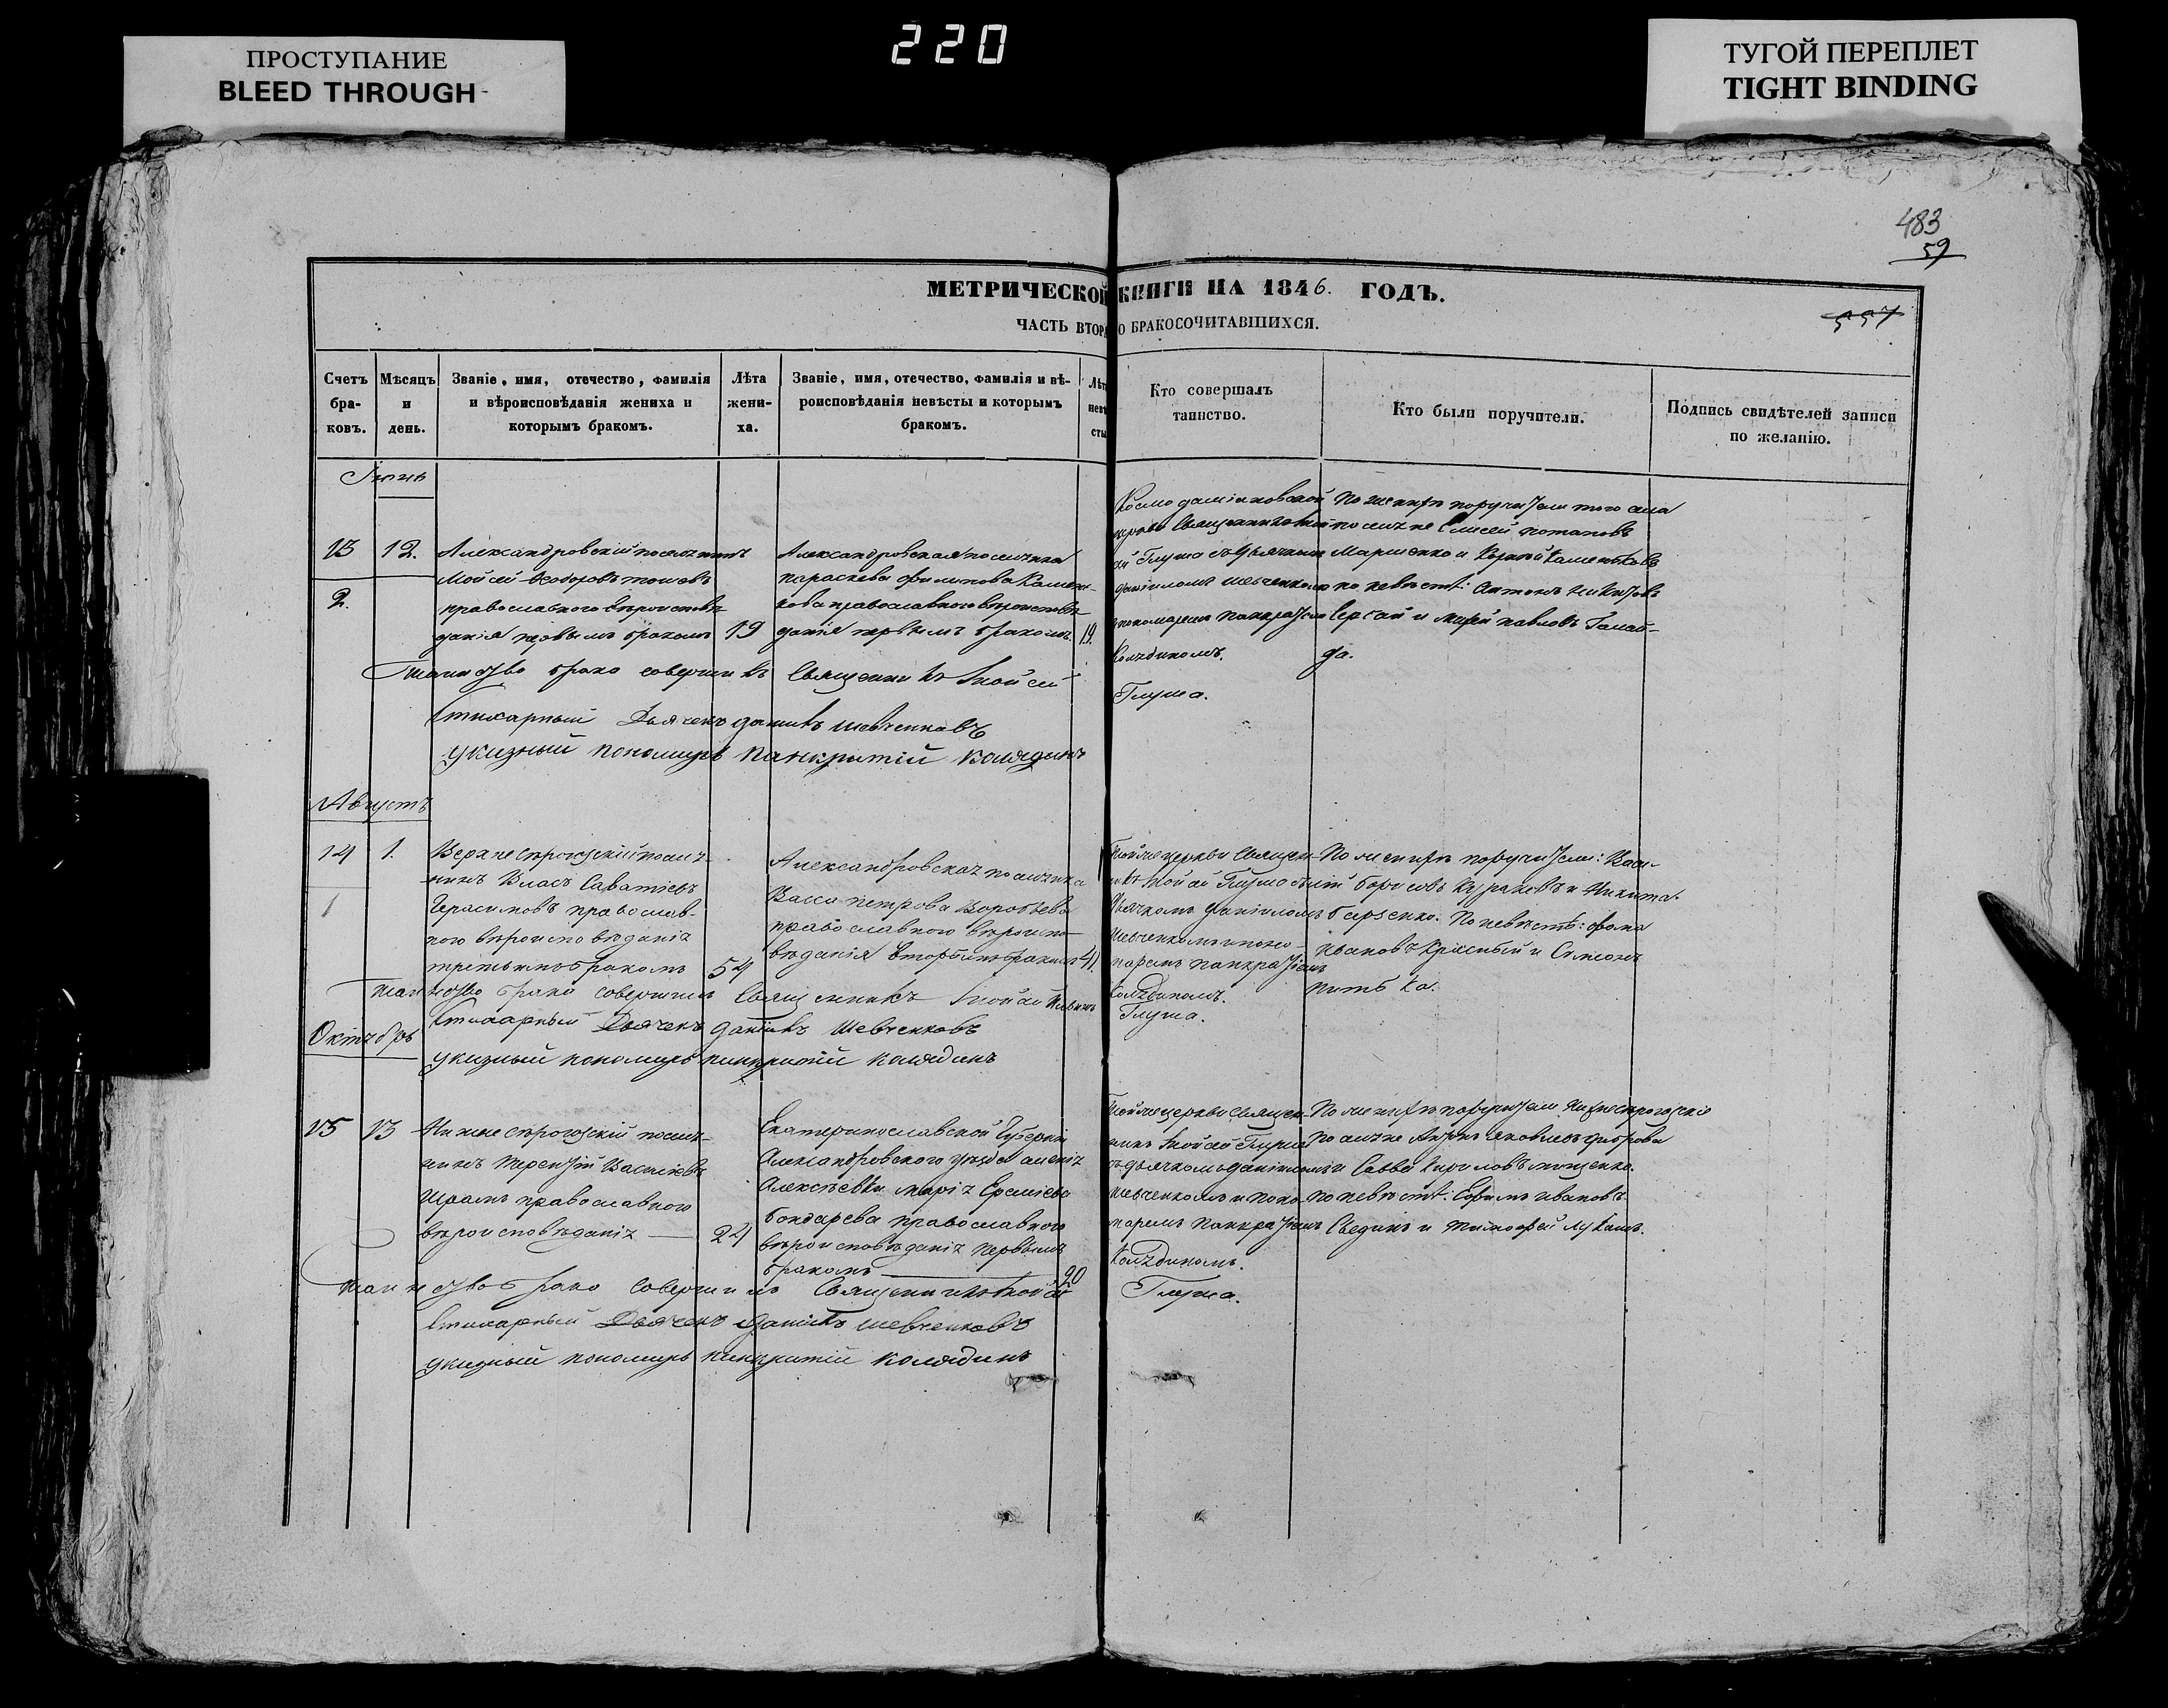 ПРОСТУПАНИЕ
BLEED THROUGH
220
ТУГОЙ ПЕРЕПЛЕТ
TIGHT BINDING
483
59
557
МЕТРИЧЕСКОЙ КНИГИ НА 1846. ГОДЪ.
ЧАСТЬ ВТОРА О БРАКОСОЧИТАВШИХСЯ.
Счетъ бра-ковъ.
Мѣсяцъ и день.
Званіе, имя, отечество, фамилія
и вѣроисповѣданія жениха и
которымъ бракомъ.
Лѣта
жени-
ха.
Званіе, имя, отечество, фамилія и вѣ-
роисповѣданія невѣсты и которымъ
бракомъ.
Лѣт
невѣ
сты
Кто совершалъ
таинство.
Кто были поручители.
Подпись свидѣтелей записи
по желанію.
Іюнь
13
2.
12.
Александровскій поселянинъ
Мойсей Ѳеодоровъ
православного вѣроисповѣ-
данія первымъ бракомъ
19
Александровская поселянка
параскева филипова Камен-
кова православного вѣроисповѣ-
данія первымъ бракомъ.
19.
Космодаміановской
церкви Священникъ
Глума съ дьячкомъ
даніиломъ Шевченкомъ
пономаремъ панкратіем
Колядиномъ.
Глума.
По женихѣ поручители того села
поселяне Елисей потаповъ
Марченко и
по невѣстѣ: Антонъ
и павловъ
да.
таинство брака совершилъ Священникъ Мойсей
Стихарный Дьячекъ даніилъ Шевченковъ
указный пономарь панкратій колядинъ
Августъ
14
1
1.
Верхнесѣрогозскій поселя-
нинъ Власъ Саватіевъ
Герасимовъ православ-
ного вѣроисповѣданія
третьимъ бракомъ
54
Александровская поселянка
Васса петрова Воробьева
православного вѣроиспо-
вѣданія вторымъ бракомъ
41.
Той же церкви Священ-
никъ Мойсей Глума съ
Дьячкомъ даніиломъ
Шевченкомъ и поно-
маремъ панкратіемъ
Колядиномъ.
Глума.
По женихѣ поручители: Васи-
лій борисовъ и Никита
По невѣстѣ: фома
ивановъ Красный и Симеонъ
таинство брака совершилъ Священникъ Мойсей
Стихарный Дьячекъ даніилъ Шевченковъ
указный пономарь панкратій колядинъ
Октябрь
15
13
Нижнесѣрогозскій поселя-
нинъ терентій Василіевъ
православного
вѣроисповѣданія
24
Екатеринославской Губерніи
Александровского уѣзда селенія
Алексѣевки марія Еремѣева
бондарева православного
вѣроисповѣданія первымъ
бракомъ
20
Той же церкви Священ-
никъ Мойсей Глума
съ дьячкомъ даніиломъ
Шевченкомъ и поно-
маремъ панкратіемъ
Колядиномъ.
Глума.
По женихѣ поручители Нижнесѣрогозскіе
поселяне Антонъ Яковлевъ
и Савва Кириловъ
По невѣстѣ: Ефимъ ивановъ
и тимофей
таинство брака совершилъ Священникъ Мойсей
Стихарный Дьячекъ Даніилъ Шевченковъ
указный пономарь панкратій колядинъ